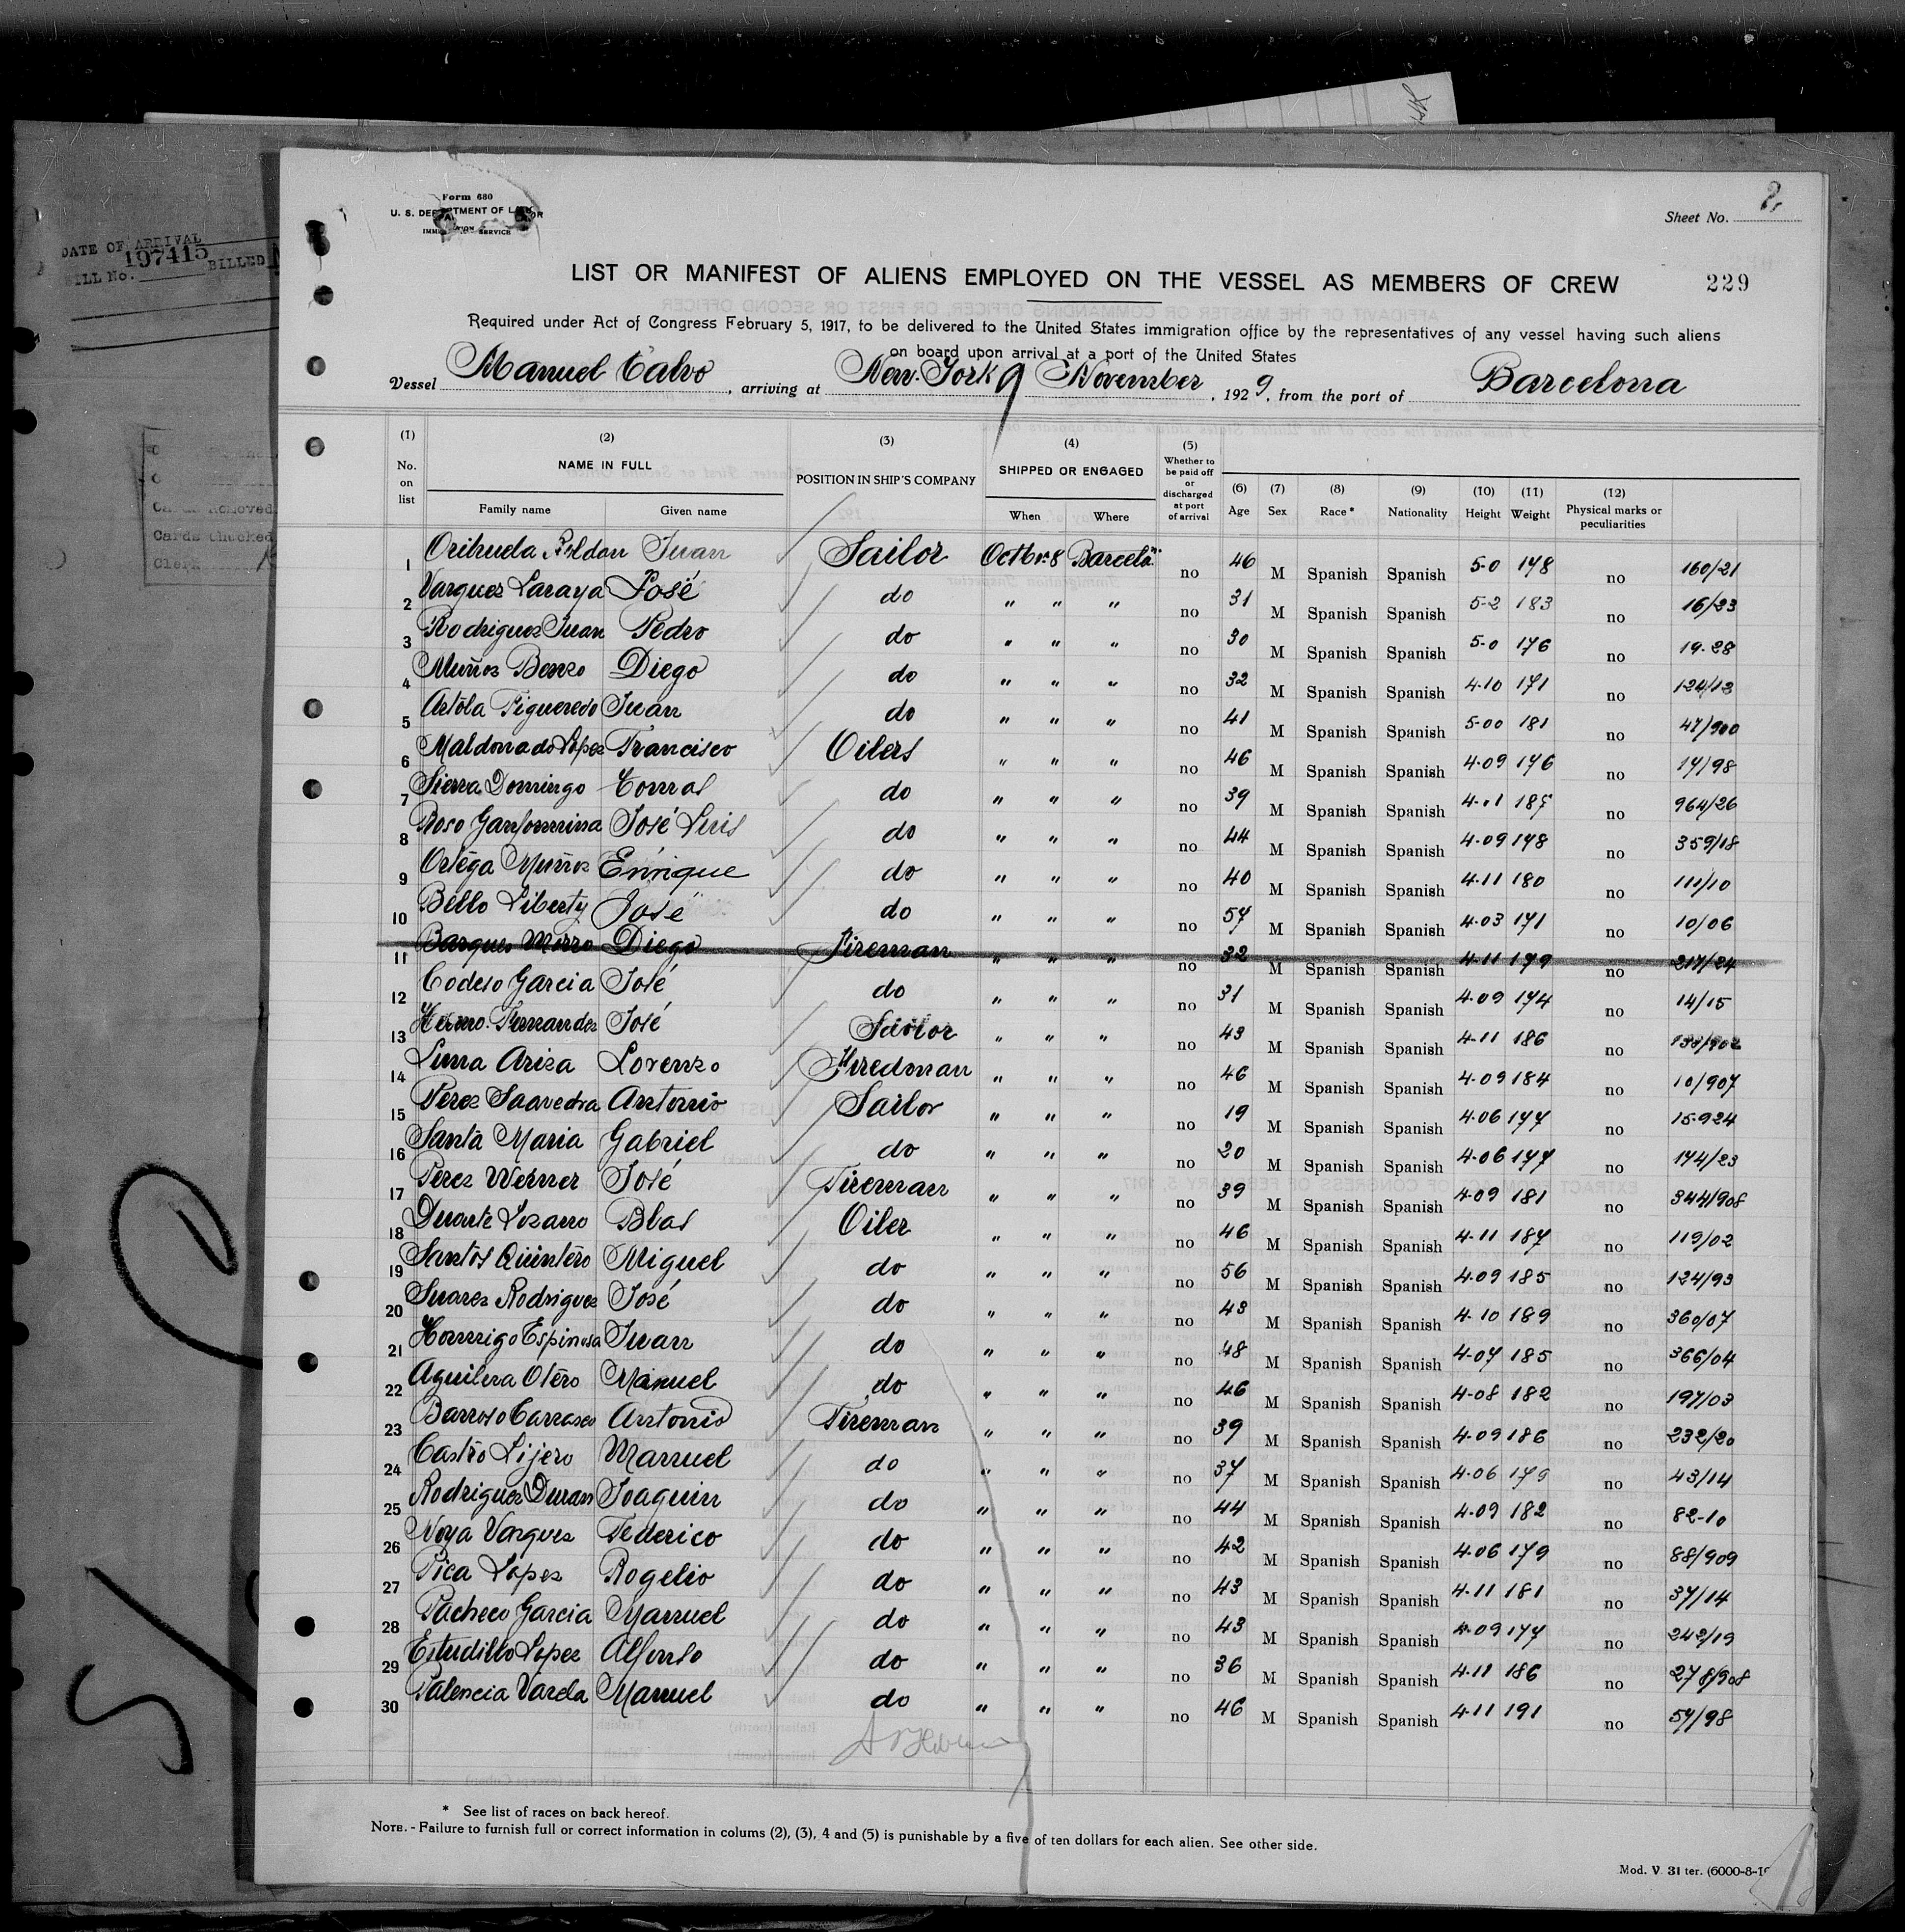 DATE OF ARRIVAL
BILL No. 197415 BILLED
Cards Checked
Clerk
Form 680
U. S. DEPARTMENT OF LABOR
IMMIGRATION SERVICE
Sheet No. 2
LIST OR MANIFEST OF ALIENS EMPLOYED ON THE VESSEL AS MEMBERS OF CREW 229
Required under Act of Congress February 5, 1917, to be delivered to the United States immigration office by the representatives of any vessel having such aliens
on board upon arrival at a port of the United States
Vessel Manuel Calvo, arriving at New-York 9 November, 1929, from the port of Barcelona
(1) No. on list (2) NAME IN FULL Family name Given name (3) POSITION IN SHIP'S COMPANY (4) SHIPPED OR ENGAGED When Where (5) Whether to be paid off or discharged at port of arrival (6) Age (7) Sex (8) Race * (9) Nationality (10) Height (11) Weight (12) Physical marks or peculiarities
1 Orihuela Roldan Juan Sailor Octbre 8 Barcelona no 46 M Spanish Spanish 5-0 178 no 160/21
2 Varques Laraya José do " " " no 31 M Spanish Spanish 5-2 183 no 16/23
3 Rodrigues Juan Pedro do " " " no 30 M Spanish Spanish 5-0 176 no 19-28
4 Muños Benzo Diego do " " " no 32 M Spanish Spanish 4-10 171 no 124/12
5 Artola Figueredo Juan do " " " no 41 M Spanish Spanish 5-00 181 no 47/900
6 Maldonado Lopez Francisco Oilers " " " no 46 M Spanish Spanish 4-09 176 no 17/98
7 Sierra Domingo Tomas do " " " no 39 M Spanish Spanish 4-11 187 no 964/26
8 Roso José Luis do " " " no 44 M Spanish Spanish 4-09 178 no 359/18
9 Ortega Muños Enrique do " " " no 40 M Spanish Spanish 4-11 180 no 111/10
10 Bello Liberty José do " " " no 57 M Spanish Spanish 4-03 171 no 10/06
11 Barques Morro Diego Fireman " " " no 32 M Spanish Spanish 4-11 179 no 217/24
12 Codeso Garcia José do " " " no 31 M Spanish Spanish 4-09 174 no 14/15
13 Fernandez José Sailor " " " no 43 M Spanish Spanish 4-11 186 no
14 Luna Ariza Lorenzo Firedman " " " no 46 M Spanish Spanish 4-09 184 no 10/907
15 Perez Saavedra Antonio Sailor " " " no 19 M Spanish Spanish 4-06 177 no 15-924
16 Santa Maria Gabriel do " " " no 20 M Spanish Spanish 4-06 177 no 174/23
17 Perez Werner José Fireman " " " no 39 M Spanish Spanish 4-09 181 no 344/908
18 Duarte Lozano Blas Oiler " " " no 46 M Spanish Spanish 4-11 187 no 119/02
19 Santos Quintero Miguel do " " " no 56 M Spanish Spanish 4-09 185 no 124/93
20 Suarez Rodriguez José do " " " no 43 M Spanish Spanish 4-10 189 no 360/07
21 Hormigo Espinosa Juan do " " " no 48 M Spanish Spanish 4-07 185 no 366/04
22 Aguilera Otero Manuel do " " " no 46 M Spanish Spanish 4-08 182 no 197/03
23 Barroso Carrasco Antonio Fireman " " " no 39 M Spanish Spanish 4-09 186 no 232/20
24 Castro Lijero Manuel do " " " no 37 M Spanish Spanish 4-06 179 no 43/14
25 Rodriguez Duran Joaquin do " " " no 44 M Spanish Spanish 4-09 182 no 82-10
26 Noya Vazquez Federico do " " " no 42 M Spanish Spanish 4-06 179 no 88/909
27 Pica Lopez Rogelio do " " " no 43 M Spanish Spanish 4-11 181 no 37/14
28 Pacheco Garcia Manuel do " " " no 43 M Spanish Spanish 4-09 177 no 242/19
29 Estudillo Lopez Alfonso do " " " no 36 M Spanish Spanish 4-11 186 no 278/908
30 Palencia Varela Manuel do " " " no 46 M Spanish Spanish 4-11 191 no 57/98
* See list of races on back hereof.
NOTE. - Failure to furnish full or correct information in colums (2), (3), 4 and (5) is punishable by a five of ten dollars for each alien. See other side.
Mod. V. 31 ter. (6000-8-19